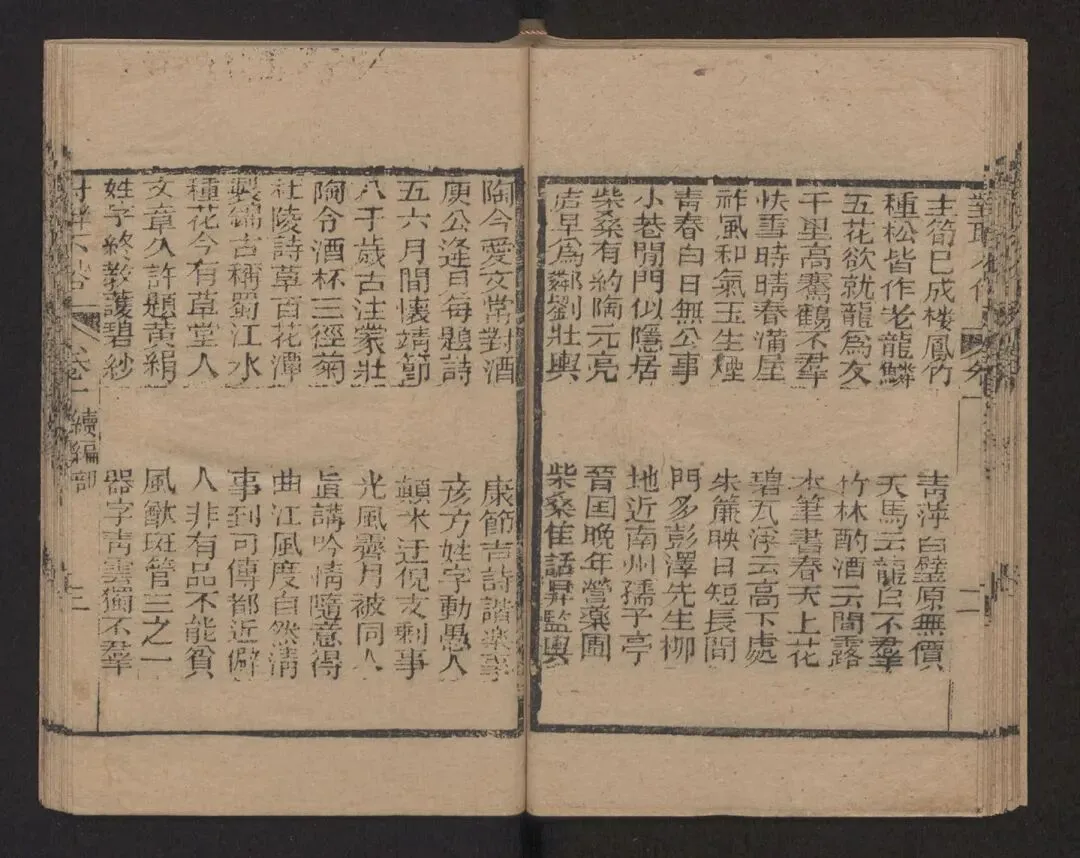 主筍已成棲鳳竹
種松皆作老龍鱗
五花欲就龍為友
千里高騫鶴不羣
快雪時晴春滿屋
祚風和氣玉生煙
青春白日無公事
小巷閒門似隱居
柴桑有約陶元亮
早為鄰劉壯輿
青萍白璧原無價
天馬云龍自不羣
竹林酌酒云間露
水筆書春天上花
碧瓦浮云高下處
朱簾映日短長間
門多彭澤先生柳
地近南州孺子亭
晉国晚年營藥圃
柴桑佳話昇監輿
陶令愛文常對酒
庾公逢日每題詩
五六月間懷靖節
八千歲古注蒙莊
陶令酒杯三徑菊
杜陵詩草百花潭
製錦古稱蜀江水
種花今有草堂人
文章久許題黃絹
姓字終教護碧紗
康節吉詩諧樂事
彥方姓字動愚人
顛米迂倪支剩事
光風霽月被同人
旨講吟情隨意得
曲江風度自然清
事到可傳都近僻
人非有品不能貧
風猷斑管三之一
器字靑雲獨不羣
卷一 續編部 二